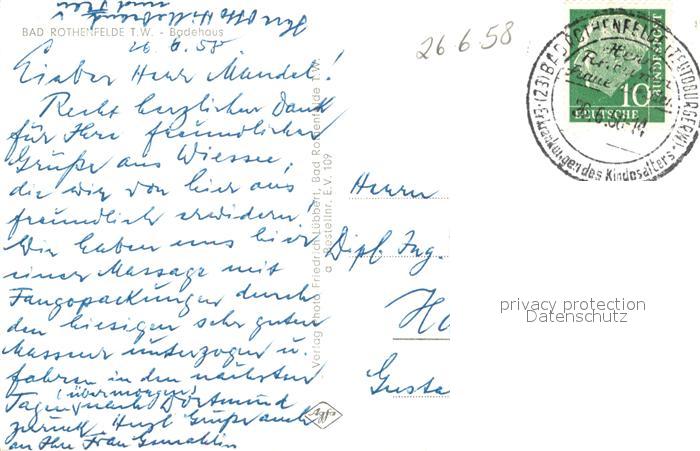 Ihr Otto Hillebrand
und Frau
BAD ROTHENFELDE T.W. - Badehaus
26.6.58
Lieber Herr Mandel!
Recht herzlichen Dank
für Ihre freundlichen
Grüße aus Wiessee,
die wir von hier aus
freundlich erwidern!
Wir haben uns hier
einer Massage mit
Fangopackungen durch
den hiesigen sehr guten
Masseur unterzogen u.
fahren in den nächsten
(übermorgen)
Tagen nach Dortmund
zurück. Herzl. Grüße auch
an Ihre Frau Gemahlin
Verlag Photo Friedrich Lübbert, Bad Rothenfelde T.W.
a. Postellnr. E.V. 109
Agfa
26.6.58
Herrn
Dipl. Ing.
Gusta
10
DEUTSCHE
BUNDESPOST
(23) BAD ROTHENFELDE (TEUTOBURGERW)
26.6.58-14
Erkrankungen des Kindesalters
privacy protection
Datenschutz